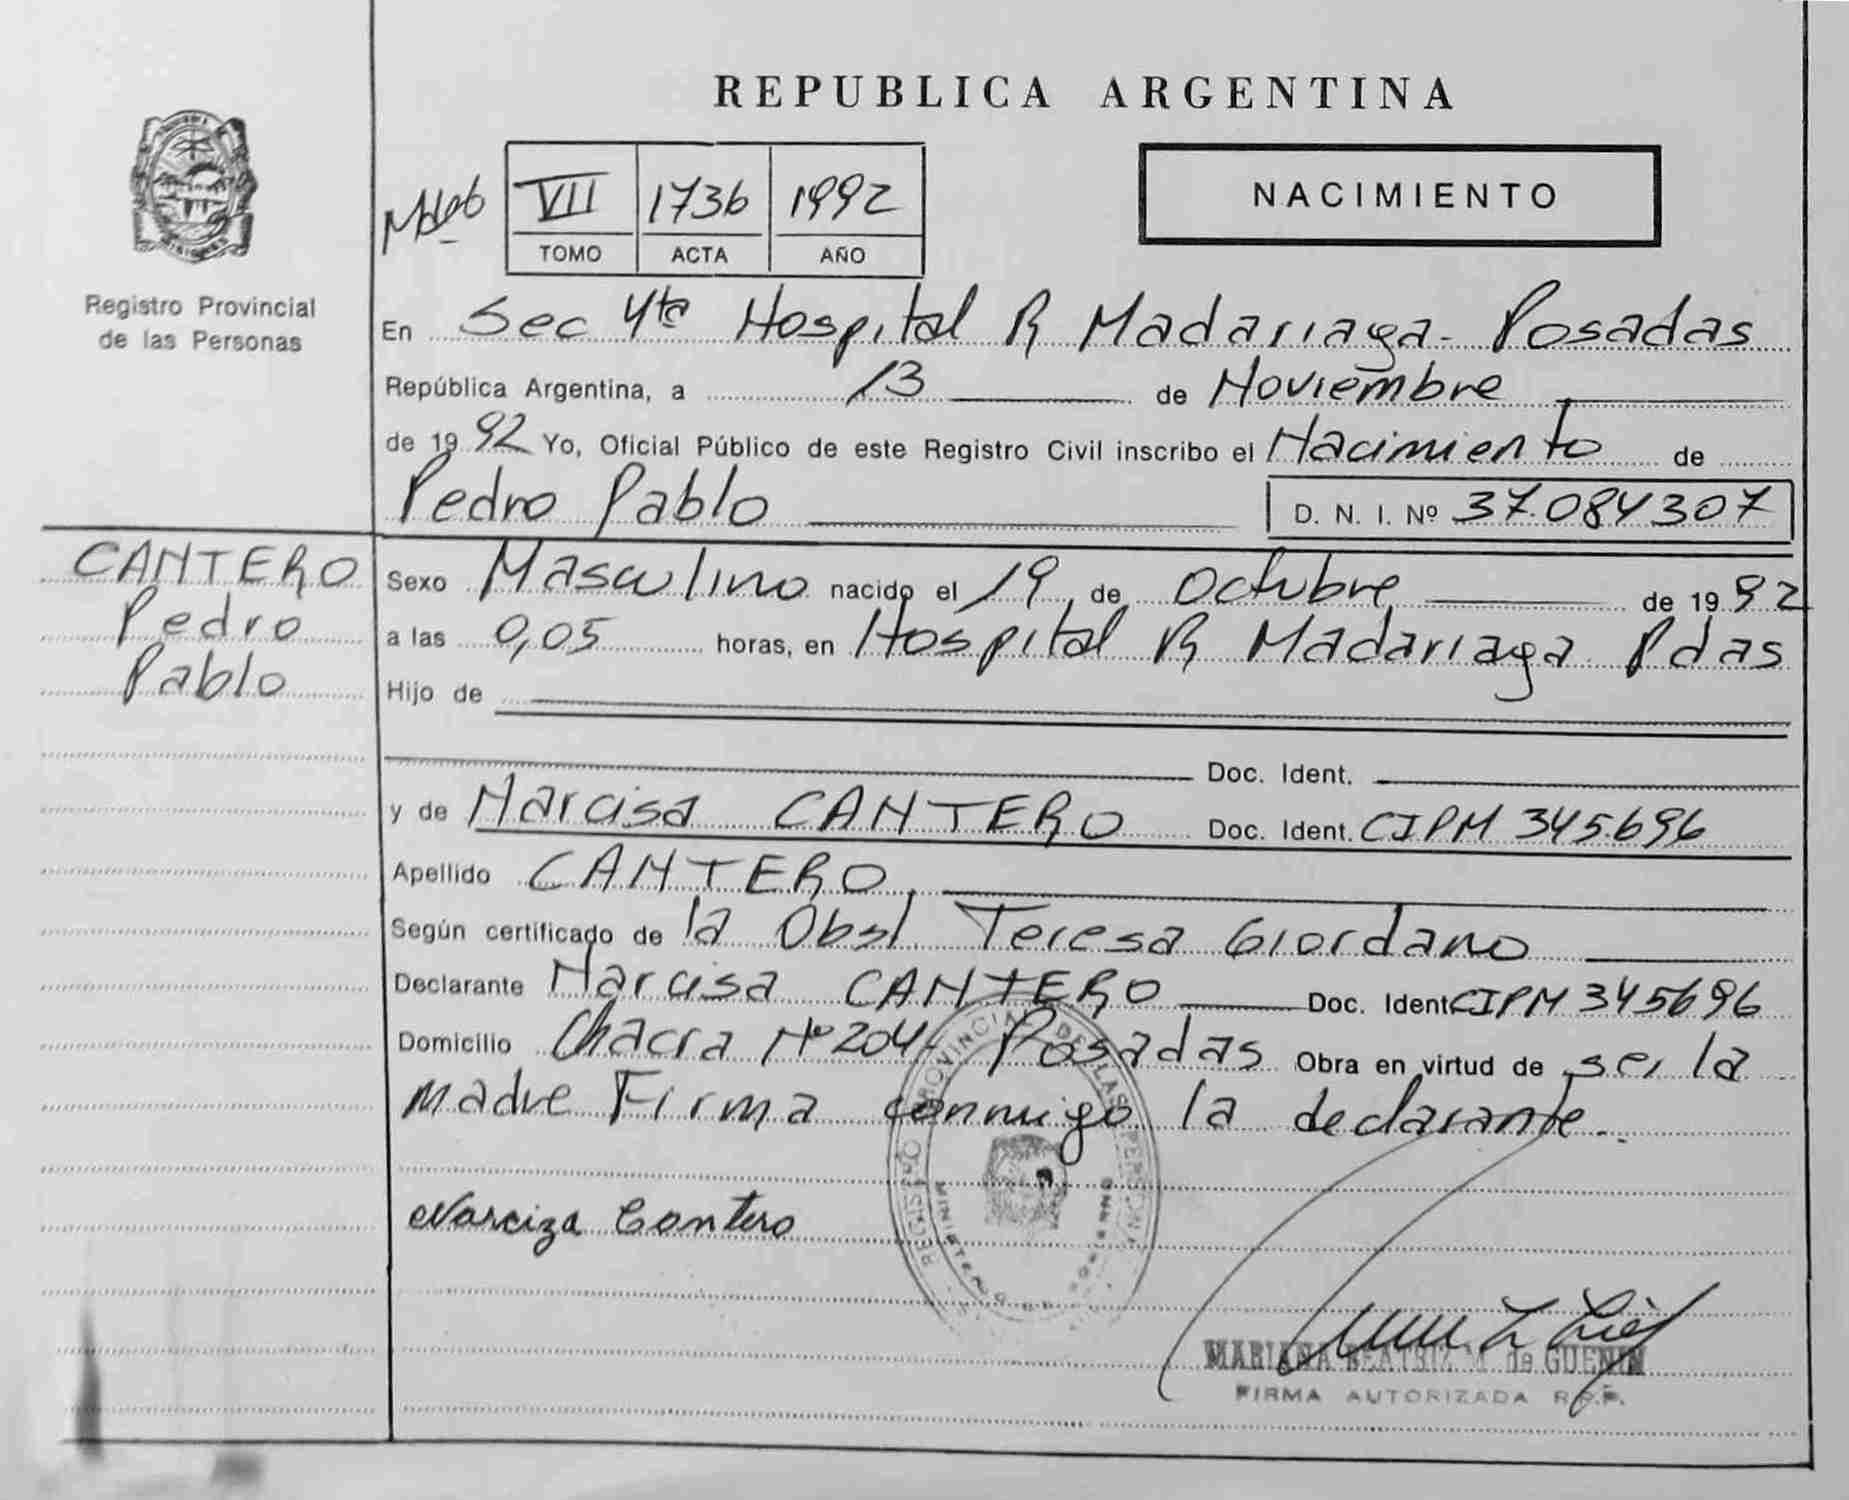 REPUBLICA ARGENTINA
VII 1736 1992
TOMO ACTA AÑO
NACIMIENTO
Registro Provincial
de las Personas
En Sec 4ta Hospital R Madariaga - Posadas
República Argentina, a 13 de Noviembre
de 1992 Yo, Oficial Público de este Registro Civil inscribo el Nacimiento de
Pedro Pablo D. N. I. Nº 37.084307
CANTERO
Pedro
Pablo
Sexo Masculino nacido el 19 de Octubre de 1992
a las 0,05 horas, en Hospital R Madariaga Pdas
Hijo de
Doc. Ident.
y de Narcisa CANTERO Doc. Ident. CIPM 345.696
Apellido CANTERO
Según certificado de la Obst. Teresa Giordano
Declarante Narcisa CANTERO Doc. Ident CIPM 345696
Domicilio Chacra Nº 204- Posadas Obra en virtud de ser la
madre Firma conmigo la declarante.
REGISTRO PROVINCIAL DE LAS PERSONAS
MINISTERIO DE GOBIERNO
Narciza Cantero
MARIANA BEATRIZ M de GUENIN
FIRMA AUTORIZADA R.P.P.